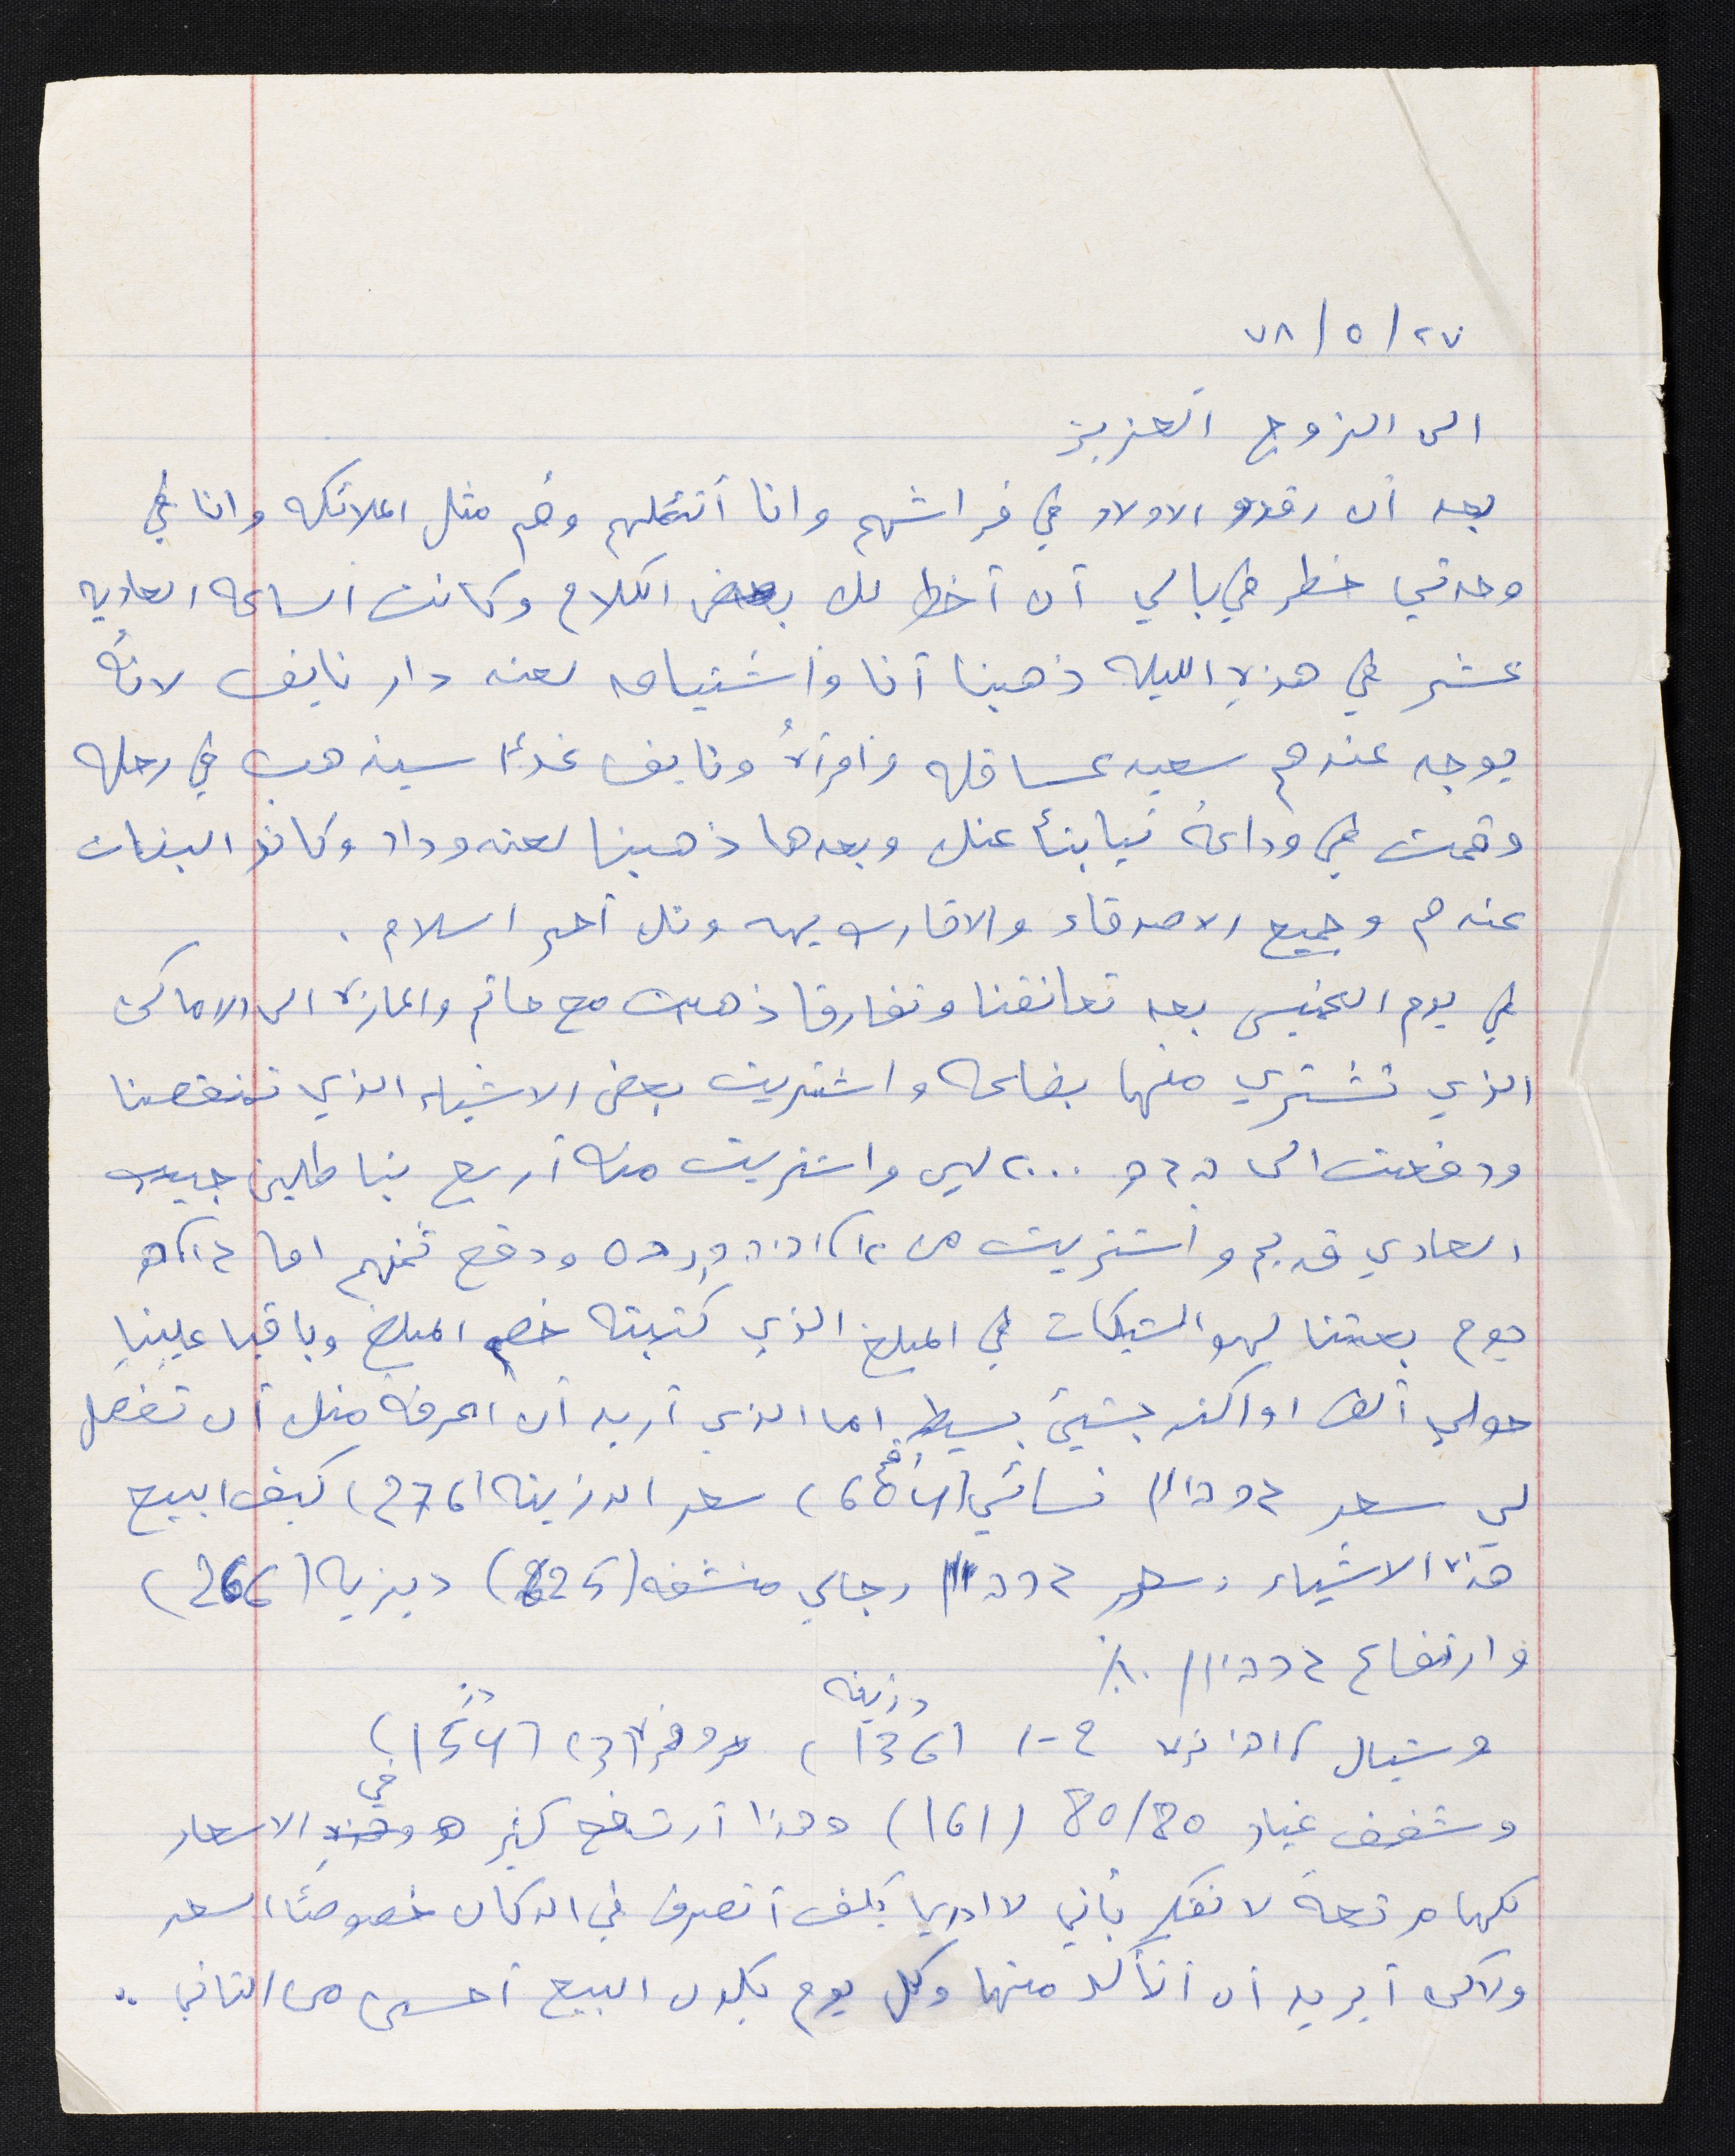 ٢٧/٥/٧٨
الى الزوج العزيز
بعد أن رقدو الاولاد في فراشهم وانا أتئملهم وهم مثل الملائكه وانا في
وحدتي خطر في بالي أن أخط لك بعض الكلام وكانت الساعه الحاديه
عشر في هذه الليله ذهبنا أنا واشتياحه لعند دار نايف لانه
يوجد عندهم سعيد عساقله وامرأه ونايف غدئا سيذهب في رحله
وقمت في وداعه نيابتئا عنك وبعدها ذهبنا لعند وداد وكانو البنات
عندهم وجميع الاصدقاء والاقارب يهدونك أحر اسلام .
في يوم الخميس بعد تعانقنا وتفارقنا ذهبت مع حاتم والمازه الى الاماكن
الذي تشتري منها بضاعه واشتريت بعض الاشياء الذي تنقصنا
ودفعت الى ٢٠٠٠ ليره واشتريت منه أربع بناطلين جيبسه
العادي قديم واشتريت من ودفع ثمنهم اما
يوم بعتنا لهو الشيكات في المبلغ الذي كتبته خصم المبلغ وباقيا علينا
حوالي ألف او اكثر بشيئ بسيط اما الذي أريد أن اعرفه منك أن تفصل
لي سعر نسائي سعر الدزينه (276) كيف ابيع
هذا الاشياء وسعر رجالي منشفه (625) دبزيه (266)
وارتفاع ١٠٪
دزينه
وشيال 2-1 (136)
في
وشفف غيار 80/80 (161) وهذا أرتفع كثير هو وهذه الاسعار
كلها مرتعة لا تفكر بأني لا ادري كيف أتصرف في الدكان خصوصئا السعر
ولاكن أريد أن أتأكد منها وكل يوم يكون البيع أحسن من الثاني ..